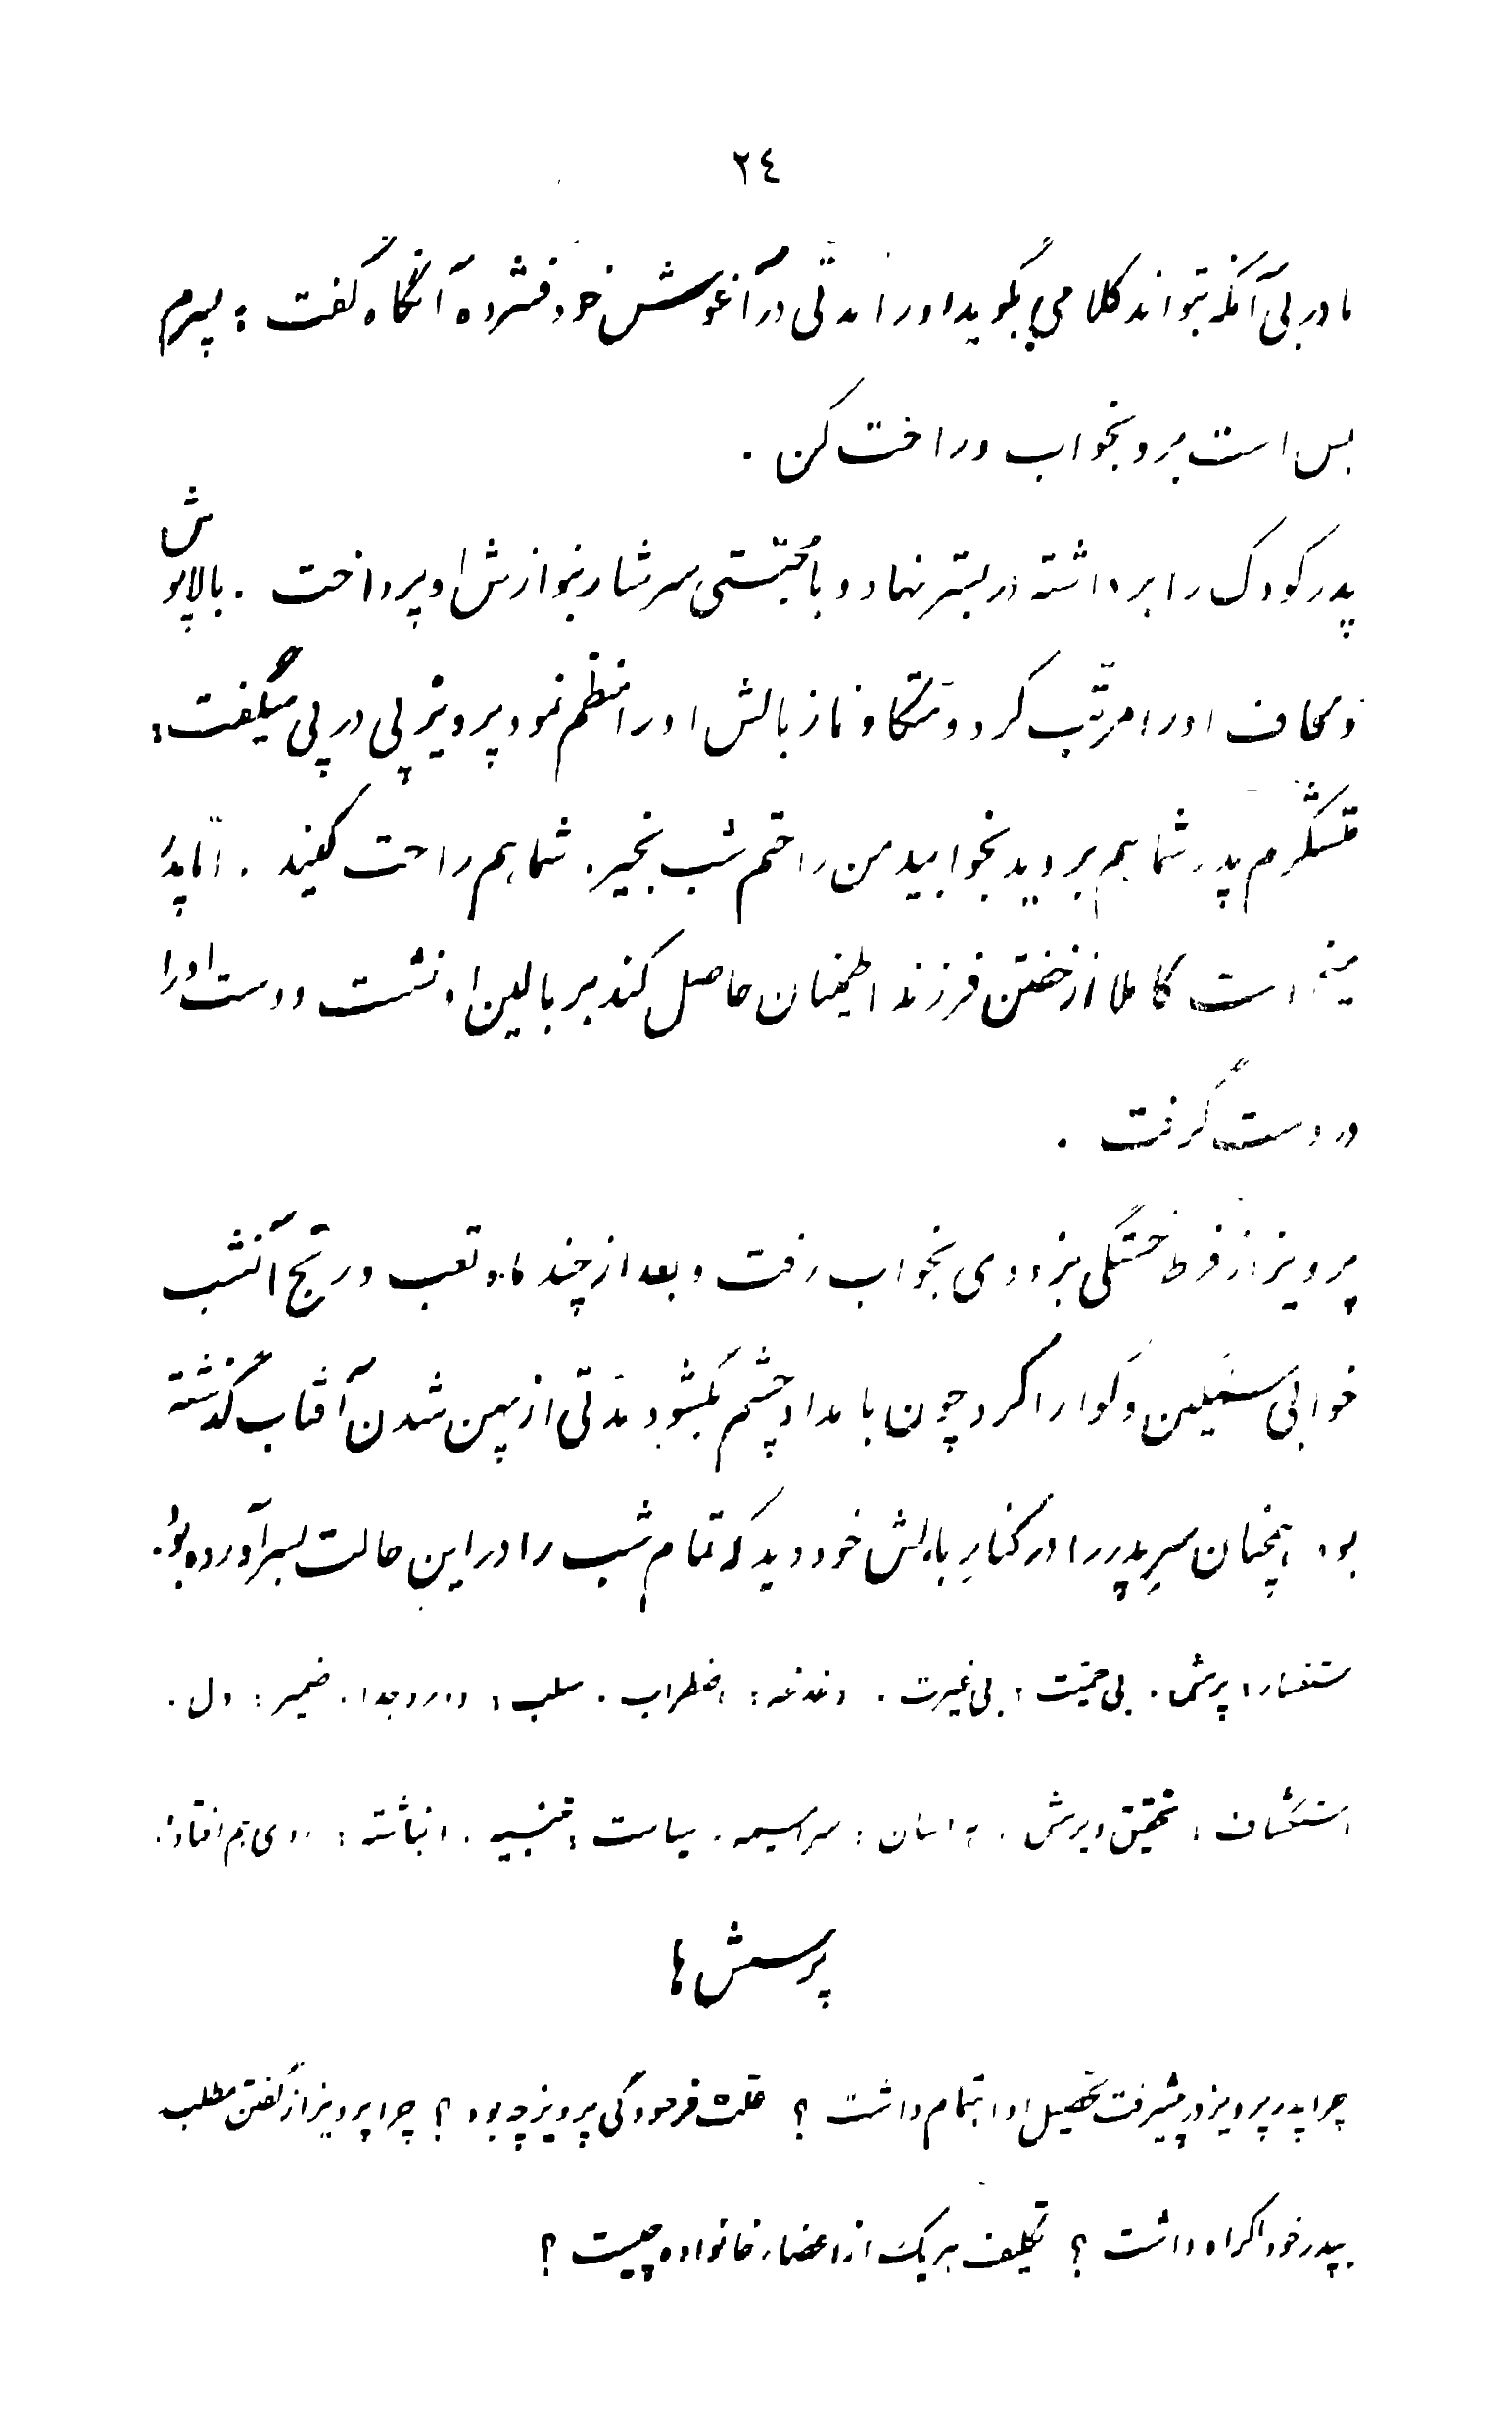 ٢٤
مادر بی آنکه بتواند کلامی بگوید اورا مدتی در آغوش خود فشرده آنگاه گفت : پسرم
بس است برو بخواب و راحت کن .
پدر کودک را برداشته در بستر نهاد و با محبتی سرشار بنوازش او پرداخت . بالاپوش
و لحاف اورا مرتّب کرد و متکا و ناز بالش اورا منظم نمود پرویز پی در پی میگفت :
متشکرم پدر شما هم بروید بخوابید من راحتم شب بخیر . شما هم راحت کنید . امّا پدر
میخواست کاملا از خفتن فرزند اطمینان حاصل کند بر بالین او نشست و دست او را
در دست گرفت .
پرویز از فرط خستگی بزودی بخواب رفت و بعد از چند ماه تعب و رنج آنشب
خوابی سنگین و گوارا کرد چون بامداد چشم بگشود مدّتی از پهن شدن آفتاب گذشته
بود همچنان سرِ پدر را در کنارِ بالش خود دید که تمام شب را در این حالت بسر آورده بود .
ستفسار : پرسش . بی حمیّت : بی غیرت . دغدغه : اضطراب . سلب : دور و جدا . ضمیر : دل .
استکشاف : تحقیق و پرسش . هراسان : سراسیمه . سیاست : تنبیه . انباشته : روی هم افتاده .
پرسش ها
چرا پدر پرویز در پیشرفت تحصیل او اهتمام داشت ؟ علت فرسودگی پرویز چه بود ؟ چرا پرویز از گفتن مطلب
بپدر خود اکراه داشت ؟ تکلیف هر یک از اعضاء خانواده چیست ؟